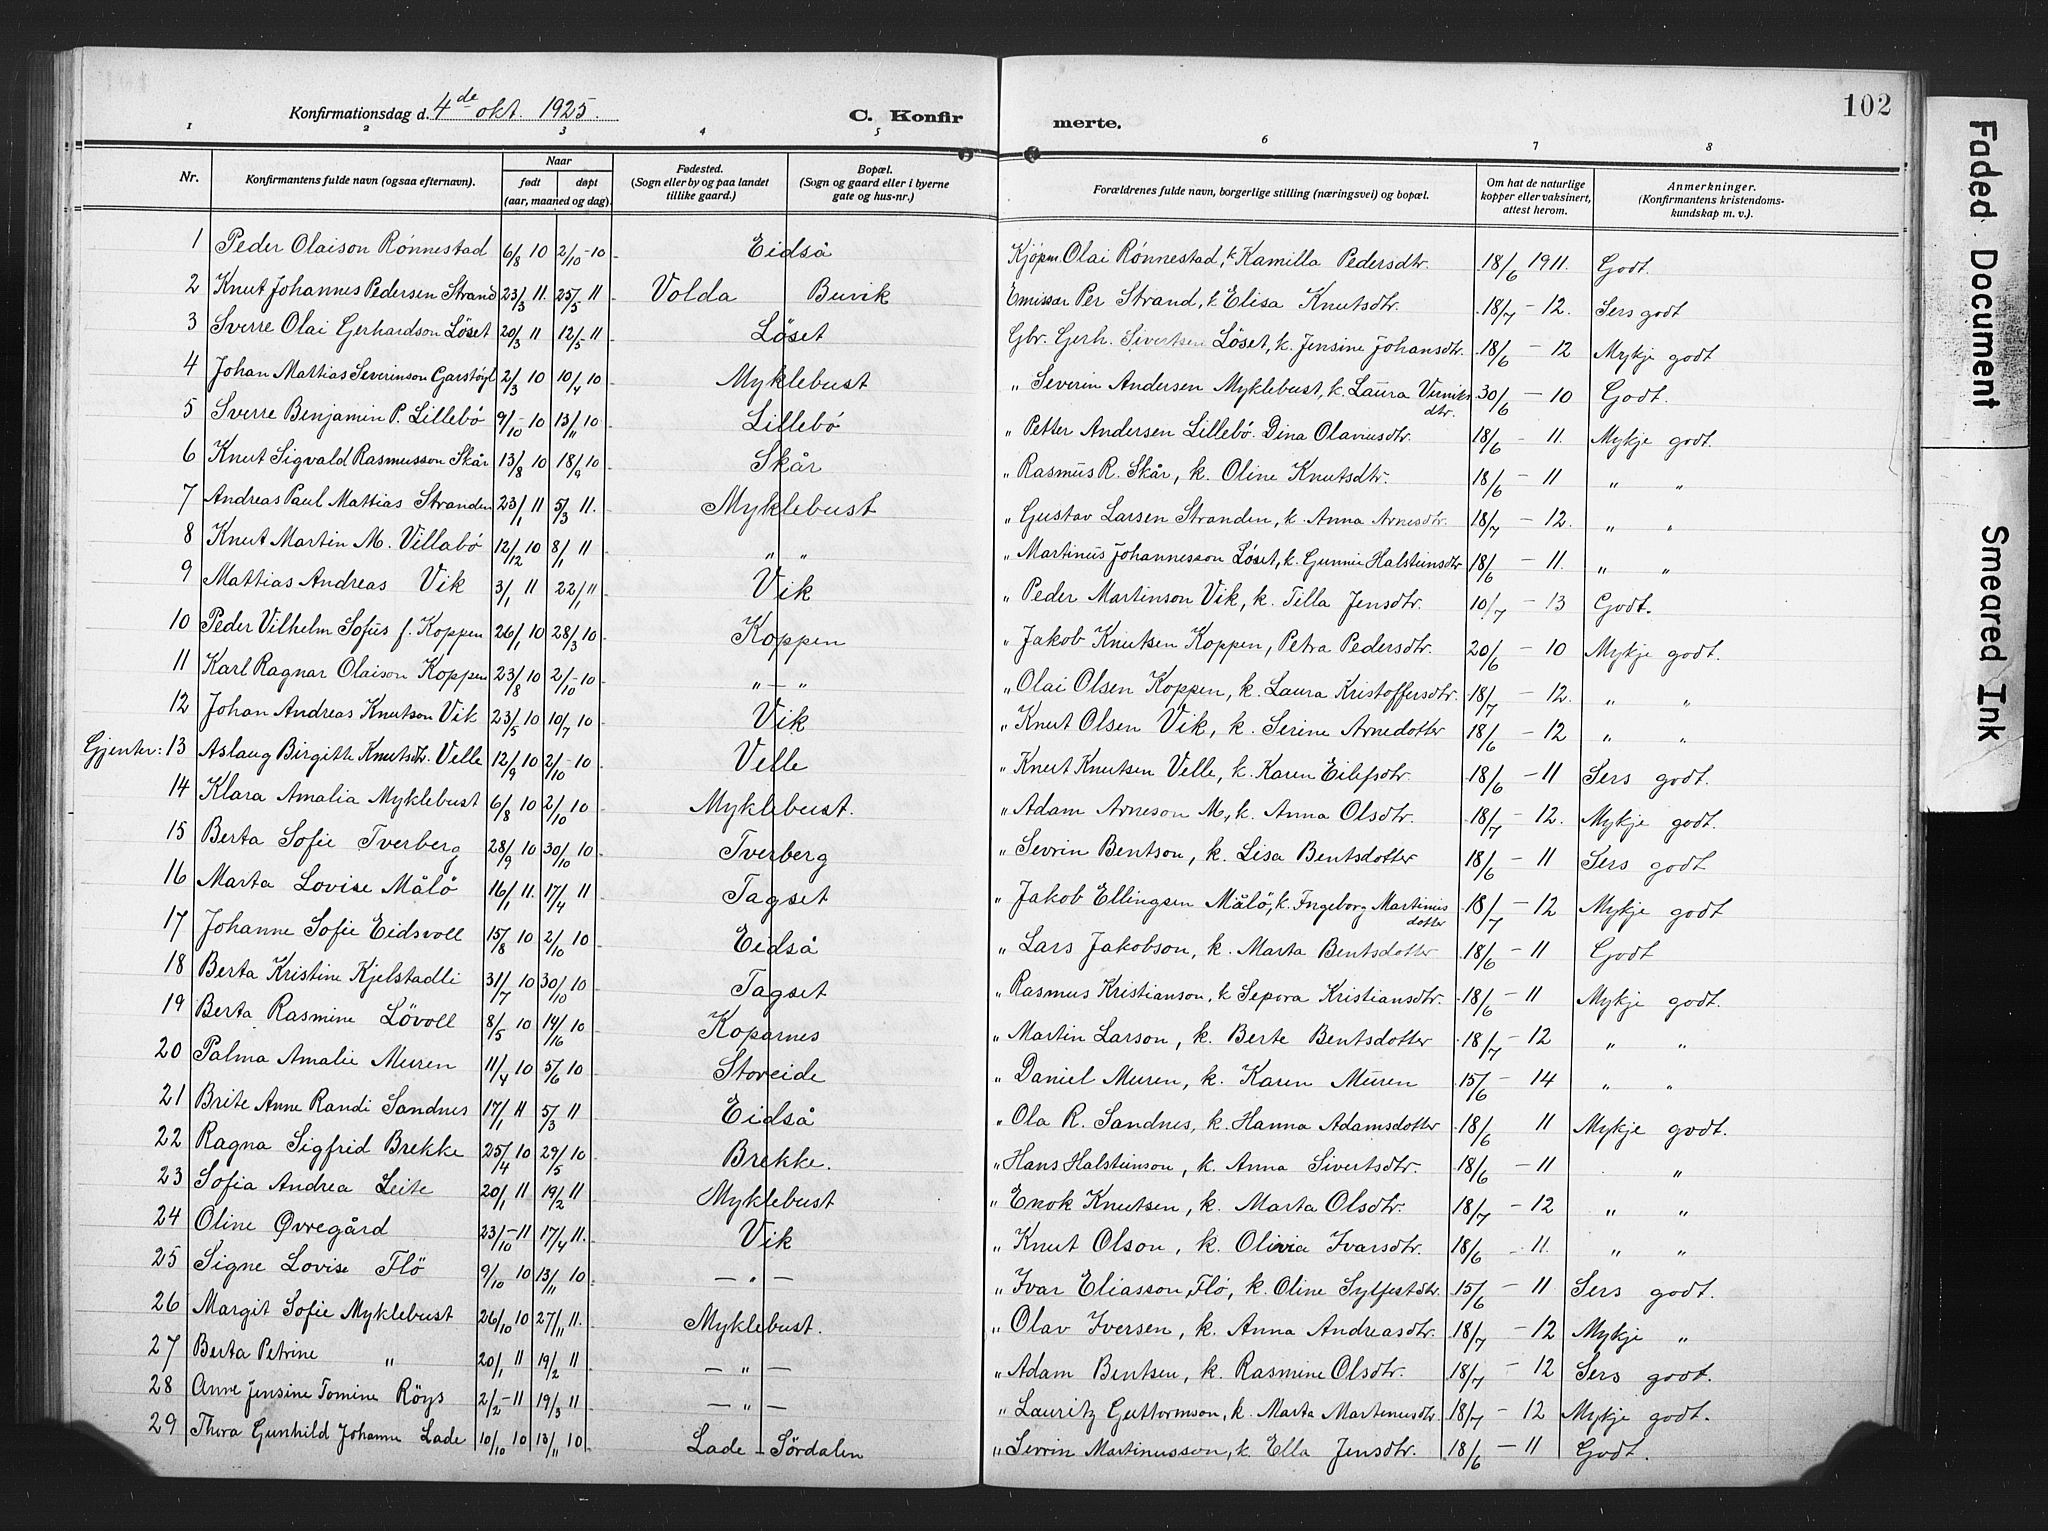 102
Konfirmationsdag d. 4de okt. 1925.
C. Konfirmerte.
1 2 3 4 5 6 7 8
Nr. Konfirmantens fulde navn (ogsaa efternavn). Naar født døpt (aar, maaned og dag). Fødested. (Sogn eller by og paa landet tillike gaard.) Bopæl. (Sogn og gaard eller i byerne gate og hus-nr.) Forældrenes fulde navn, borgerlige stilling (næringsvei) og bopæl. Om hat de naturlige kopper eller vaksinert, attest herom. Anmerkninger. (Konfirmantens kristendomskundskap m. v.).
1 Peder Olaison Rønnestad 6/8 10 2/10-10 Eidså Kjøpm. Olai Rønnestad, k Kamilla Pedersdtr. 18/6 1911. Godt.
2 Knut Johannes Pedersen Strand 23/3 11. 25/5 11 Volda Buvik Emissær Per Strand, k Elisa Knutsdtr. 18/7 - 12. Sers godt
3 Sverre Olai Gerhardson Löset 20/3 11 12/5 11 Löset Gbr. Gerh. Sivertsen Löset, k. Jensine Johansdtr. 18/6 - 12 Mykje godt
4 Johan Mattias Severinson Garstöyl 2/3 10 10/4 10 Myklebust " Severin Andersen Myklebust, k. Laura dtr. 30/6 - 10 Godt.
5 Sverre Benjamin P. Lillebö 9/10-10 13/11 10 Lillebö " Petter Andersen Lillebö. Dina Olaviusdtr. 18/6 - 11. Mykje godt.
6 Knut Sigvald Rasmusson Skår 13/8 10 18/9 10 Skår " Rasmus R. Skår, k. Oline Knutsdtr. 18/6 - 11 " "
7 Andreas Paul Mattias Stranden 23/1 11 5/3 11. Myklebust " Gustav Larsen Stranden, k. Anna Arnesdtr. 18/7 - 12. " "
8 Knut Martin M. Villabö 12/12 10 8/1 11 " " " Martinus Johannesson Löset, k. Gunnie Halsteinsdtr 18/6 - 11. " "
9 Mattias Andreas Vik 3/1 11 22/1 11 Vik " Peder Martenson Vik, k. Tilla Jensdtr. 10/7 - 13 Godt.
10 Peder Vilhelm Sofus J. Koppen 26/1 10 28/3 10 Koppen " Jakob Knutsen Koppen, Petra Pedersdtr. 20/6 - 10 Mykje godt.
11 Karl Ragnar Olaison Koppen 23/8 10 2/10-10 " - " " Olai Olsen Koppen, k. Laura Kristoffersdtr. 18/7 - 12. " "
12 Johan Andreas Knutson Vik 23/5 10 10/7 10 Vik " Knut Olsen Vik, k. Serine Arnedotter 18/6 - 12 " "
Gjenter: 13 Aslaug Birgitte Knutsdtr. Velle 12/9 10 2/10-10 Velle " Knut Knutsen Velle, k. Karen Eilefsdtr. 18/6 - 11 Sers godt.
14 Klara Amalia Myklebust 6/8 10 2/10 10 Myklebust. " Adam Arneson M, k. Anna Olsdtr. 18/7 - 12. Mykje godt.
15 Berta Sofie Tverberg 28/9 10 30/10 10 Tverberg " Sevrin Bentson, k. Lisa Bentsdotter 18/6 - 11 Sers godt
16 Marta Lovise Målö 16/1 11. 17/4 11 Tagset " Jakob Ellingsen Målö, k. Ingeborg Martinusdotter 18/7 - 12 Mykje godt
17 Johanne Sofie Eidsvoll 15/8 10 2/10 10 Eidså " Lars Jakobson, k. Marta Bentsdotter 18/6 - 11 Godt
18 Berta Kristine Kjelstadli 31/7 10 30/10 10 Tagset " Rasmus Kristianson, k Sepora Kristiansdtr. 18/6 - 11 Mykje godt.
19 Berta Rasmine Lövoll 8/5 10 14/16 10 Koparnes " Martin Larson, k. Berte Bentsdotter 18/7 - 12 " "
20 Palma Amalie Muren 11/4 10 5/6 10 Storeide " Daniel Muren, k. Karen Muren 15/6 - 14 " "
21 Brite Anne Randi Sandnes 17/1 11 5/3 11 Eidså " Ola R. Sandnes, k. Hanna Adamsdotter 18/6 11 Mykje godt.
22 Ragna Sigfrid Brekke 25/4 10 29/5 10 Brekke. " Hans Halsteinson, k. Anna Sivertsdtr. 18/6 - 11 "
23 Sofia Andrea Leite 20/1 11 19/2 11 Myklebust " Enok Knutsen, k. Marta Olsdtr. 18/7 - 12 " "
24 Oline Øvregård 23/10-11 17/4 11. Vik " Knut Olson, k. Olivia Ivarsdtr. 18/6 - 11. " "
25 Signe Lovise Flö 9/10 10 13/11 10 - " - " Ivar Eliasson Flö, k. Oline Sylfestdtr. 15/6 - 11 Sers godt.
26 Margit Sofie Myklebust 26/10 10 27/11 11. Myklebust. " Olav Iversen, k. Anna Andreasdtr. 18/7 - 12 Mykje "
27 Berta Petrine " 20/1 11 19/2 11 - " - " Adam Bentsen, k. Rasmine Olsdtr. 18/7 - 12 Sers godt.
28 Anne Jensine Tomine Röys 2/2-11 19/3 11 - " - " Lauritz Guttormson, k. Marta Martenusdtr 18/7 - 12 Mykje godt.
29 Thora Gunhild Johanne Lade 10/10 10 13/11 10 Lade - Sördalen " Sevrin Martinusson, k. Ella Jensdtr. 18/6 - 11 Godt.
Faded Document
Smeared Ink